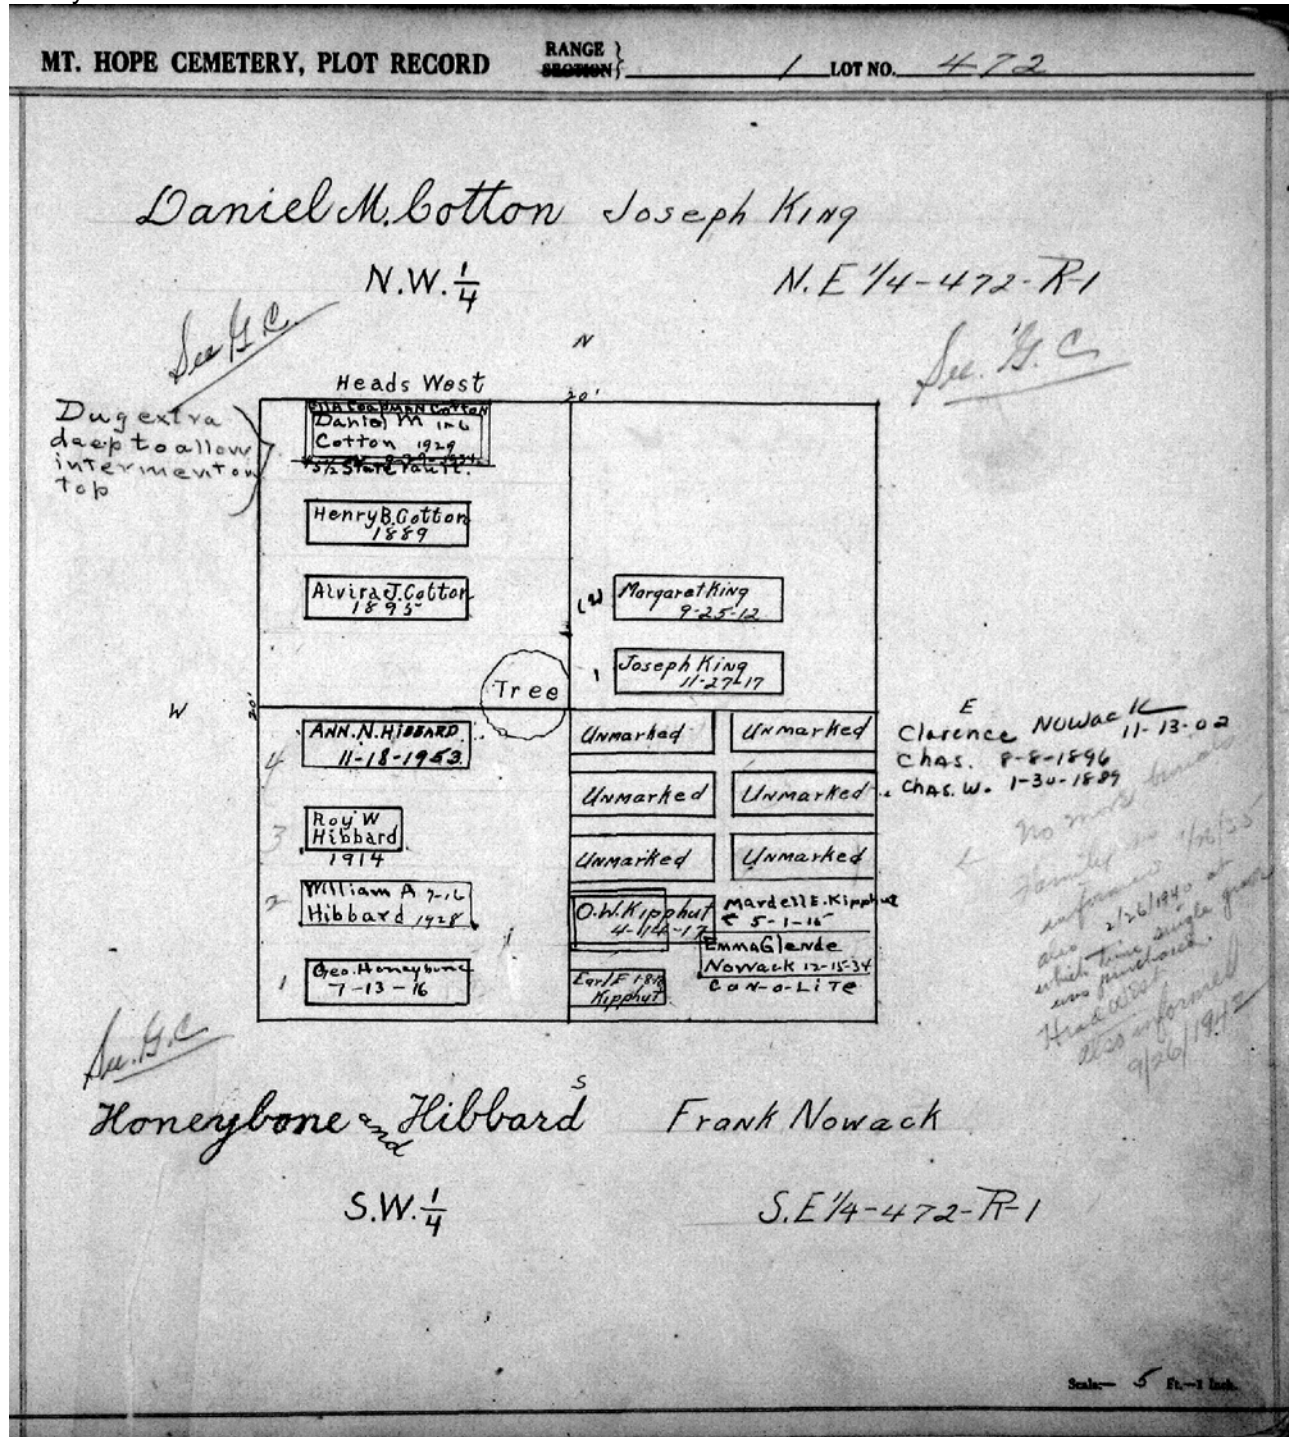 MT. HOPE CEMETERY, PLOT RECORD RANGE } SECTION 1 LOT NO. 472
Daniel M. Cotton Joseph King
N.W. 1/4 N.E 1/4-472-R-1
See G.C. See G.C
N
Heads West
20'
Dug extra
deep to allow
interment on
top
Ella Coapman Cotton
Daniel M
Cotton 1929
State Vault.
Henry B. Cotton
1889
Alvira J. Cotton
1895
(2) Margaret King
9-25-12
1 Joseph King
11-27-17
Tree
W 20' E
4 Ann. N. Hibbard
11-18-1953
3 Roy W
Hibbard
1914
2 William A 7-16
Hibbard 1928
1 Geo. Honeybone
7-13-16
Unmarked Unmarked
Unmarked Unmarked
Unmarked Unmarked
O.W. Kipphut
4-14-17
Mardell E. Kipphut
5-1-15
Emma Glende
Nowack 12-15-34
Can-o-Lite
Earl F
Kipphut
Clarence Nowack 11-13-02
Chas. 8-8-1896
Chas. W. 1-30-1889
No more burials
Family
informed
also 2/26/1940 at
which time single grave
was purchased.
Head West
also informed
9/26/1942
See G.C
S
Honeybone and Hibbard Frank Nowack
S.W. 1/4 S.E 1/4-472-R-1
Scale:— 5 Ft.—1 Inch.